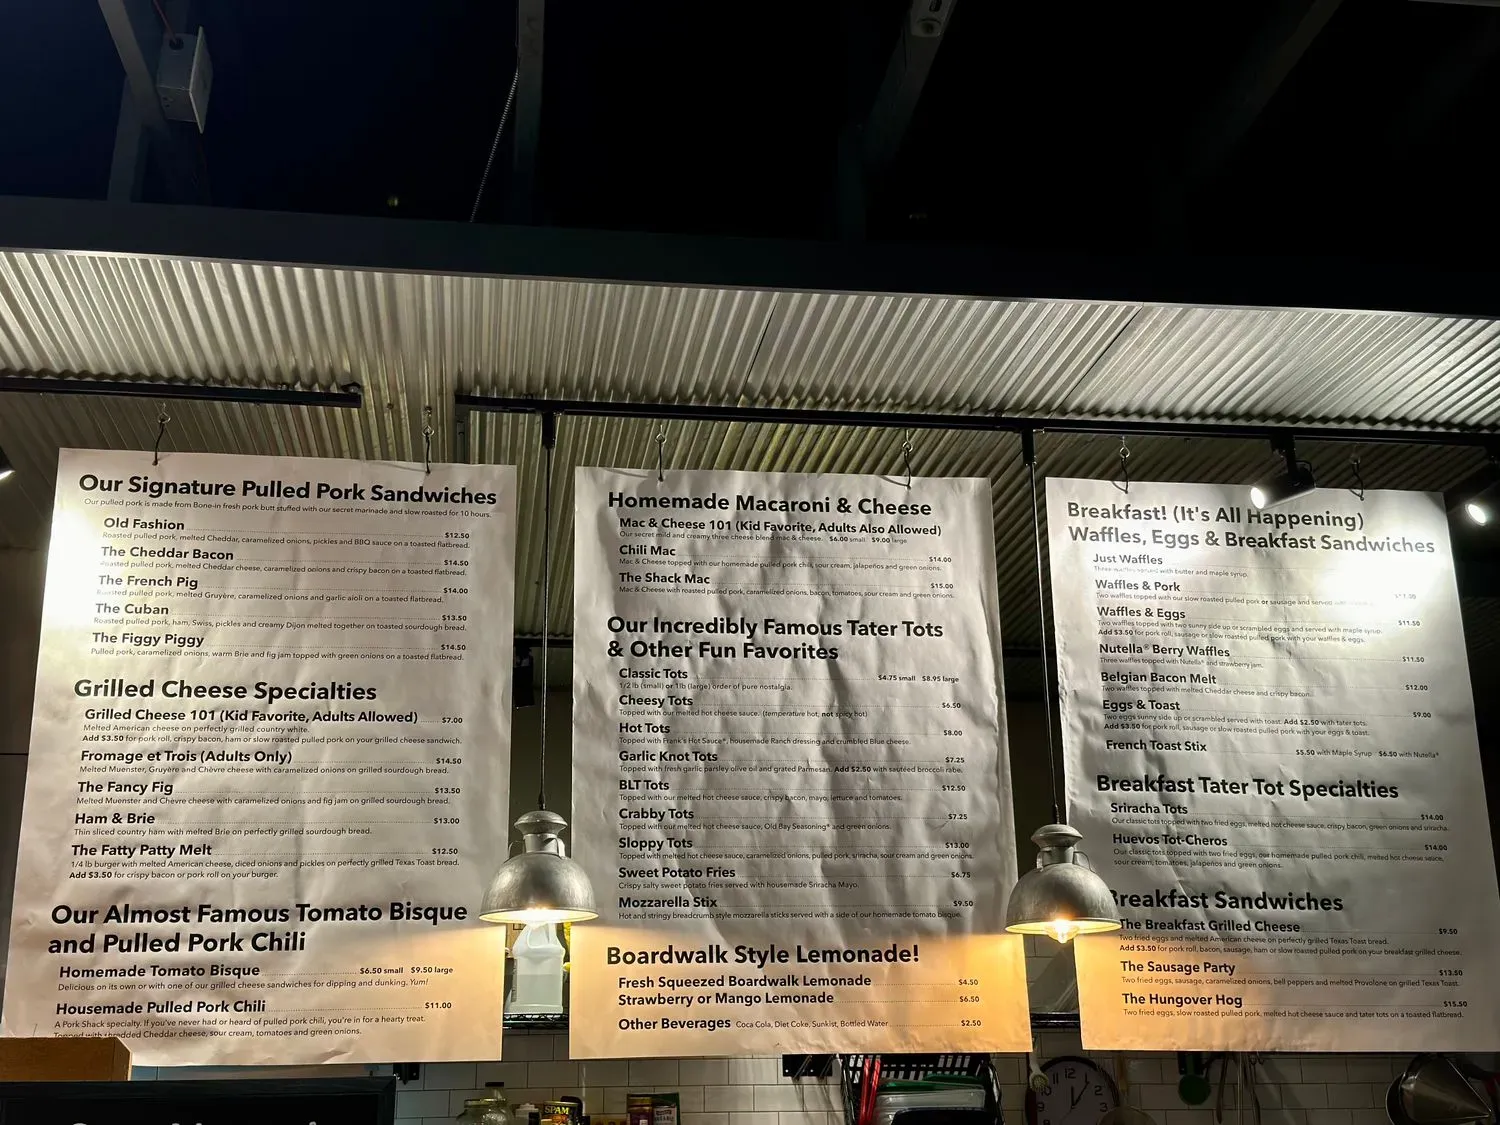 Our Signature Pulled Pork Sandwiches
Our pulled pork is made from Bone-in fresh pork butt stuffed with our secret marinade and slow roasted for 10 hours.
Old Fashion $12.50
Roasted pulled pork, melted Cheddar, caramelized onions, pickles and BBQ sauce on a toasted flatbread.
The Cheddar Bacon $14.50
Roasted pulled pork, melted Cheddar cheese, caramelized onions and crispy bacon on a toasted flatbread.
The French Pig $14.00
Roasted pulled pork, melted Gruyère, caramelized onions and garlic aioli on a toasted flatbread.
The Cuban $13.50
Roasted pulled pork, ham, Swiss, pickles and creamy Dijon melted together on toasted sourdough bread.
The Figgy Piggy $14.50
Pulled pork, caramelized onions, warm Brie and fig jam topped with green onions on a toasted flatbread.
Grilled Cheese Specialties
Grilled Cheese 101 (Kid Favorite, Adults Allowed) $7.00
Melted American cheese on perfectly grilled country white.
Add $3.50 for pork roll, crispy bacon, ham or slow roasted pulled pork on your grilled cheese sandwich.
Fromage et Trois (Adults Only) $14.50
Melted Muenster, Gruyère and Chèvre cheese with caramelized onions on grilled sourdough bread.
The Fancy Fig $13.50
Melted Muenster and Chèvre cheese with caramelized onions and fig jam on grilled sourdough bread.
Ham & Brie $13.00
Thin sliced country ham with melted Brie on perfectly grilled sourdough bread.
The Fatty Patty Melt $12.50
1/4 lb burger with melted American cheese, diced onions and pickles on perfectly grilled Texas Toast bread.
Add $3.50 for crispy bacon or pork roll on your burger.
Our Almost Famous Tomato Bisque
and Pulled Pork Chili
Homemade Tomato Bisque $6.50 small $9.50 large
Delicious on its own or with one of our grilled cheese sandwiches for dipping and dunking. Yum!
Housemade Pulled Pork Chili $11.00
A Pork Shack specialty. If you've never had or heard of pulled pork chili, you're in for a hearty treat.
Topped with shredded Cheddar cheese, sour cream, tomatoes and green onions.
Homemade Macaroni & Cheese
Mac & Cheese 101 (Kid Favorite, Adults Also Allowed)
Our secret mild and creamy three cheese blend mac & cheese. $6.00 small $9.00 large
Chili Mac $14.00
Mac & Cheese topped with our homemade pulled pork chili, sour cream, jalapeños and green onions.
The Shack Mac $15.00
Mac & Cheese with roasted pulled pork, caramelized onions, bacon, tomatoes, sour cream and green onions.
Our Incredibly Famous Tater Tots
& Other Fun Favorites
Classic Tots $4.75 small $8.95 large
1/2 lb (small) or 1lb (large) order of pure nostalgia.
Cheesy Tots $6.50
Topped with our melted hot cheese sauce. (temperature hot, not spicy hot)
Hot Tots $8.00
Topped with Frank's Hot Sauce®, housemade Ranch dressing and crumbled Blue cheese.
Garlic Knot Tots $7.25
Topped with fresh garlic parsley olive oil and grated Parmesan. Add $2.50 with sautéed broccoli rabe.
BLT Tots $12.50
Topped with our melted hot cheese sauce, crispy bacon, mayo, lettuce and tomatoes.
Crabby Tots $7.25
Topped with our melted hot cheese sauce, Old Bay Seasoning® and green onions.
Sloppy Tots $13.00
Topped with melted hot cheese sauce, caramelized onions, pulled pork, sriracha, sour cream and green onions.
Sweet Potato Fries $6.75
Crispy salty sweet potato fries served with housemade Sriracha Mayo.
Mozzarella Stix $9.50
Hot and stringy breadcrumb style mozzarella sticks served with a side of our homemade tomato bisque.
Boardwalk Style Lemonade!
Fresh Squeezed Boardwalk Lemonade $4.50
Strawberry or Mango Lemonade $6.50
Other Beverages Coca Cola, Diet Coke, Sunkist, Bottled Water $2.50
Breakfast! (It's All Happening)
Waffles, Eggs & Breakfast Sandwiches
Just Waffles
Three waffles served with butter and maple syrup.
Waffles & Pork
Two waffles topped with our slow roasted pulled pork or sausage and served
Waffles & Eggs $11.50
Two waffles topped with two sunny side up or scrambled eggs and served with maple syrup.
Add $3.50 for pork roll, sausage or slow roasted pulled pork with your waffles & eggs.
Nutella® Berry Waffles $11.50
Three waffles topped with Nutella® and strawberry jam.
Belgian Bacon Melt $12.00
Two waffles topped with melted Cheddar cheese and crispy bacon.
Eggs & Toast $9.00
Two eggs sunny side up or scrambled served with toast. Add $2.50 with tater tots.
Add $3.50 for pork roll, sausage or slow roasted pulled pork with your eggs & toast.
French Toast Stix $5.50 with Maple Syrup $6.50 with Nutella®
Breakfast Tater Tot Specialties
Sriracha Tots $14.00
Our classic tots topped with two fried eggs, melted hot cheese sauce, crispy bacon, green onions and sriracha.
Huevos Tot-Cheros $14.00
Our classic tots topped with two fried eggs, our homemade pulled pork chili, melted hot cheese sauce,
sour cream, tomatoes, jalapeños and green onions.
Breakfast Sandwiches
The Breakfast Grilled Cheese $9.50
Two fried eggs and melted American cheese on perfectly grilled Texas Toast bread.
Add $3.50 for pork roll, bacon, sausage, ham or slow roasted pulled pork on your breakfast grilled cheese.
The Sausage Party $13.50
Two fried eggs, sausage, caramelized onions, bell peppers and melted Provolone on grilled Texas Toast.
The Hungover Hog $15.50
Two fried eggs, slow roasted pulled pork, melted hot cheese sauce and tater tots on a toasted flatbread.
SPAM